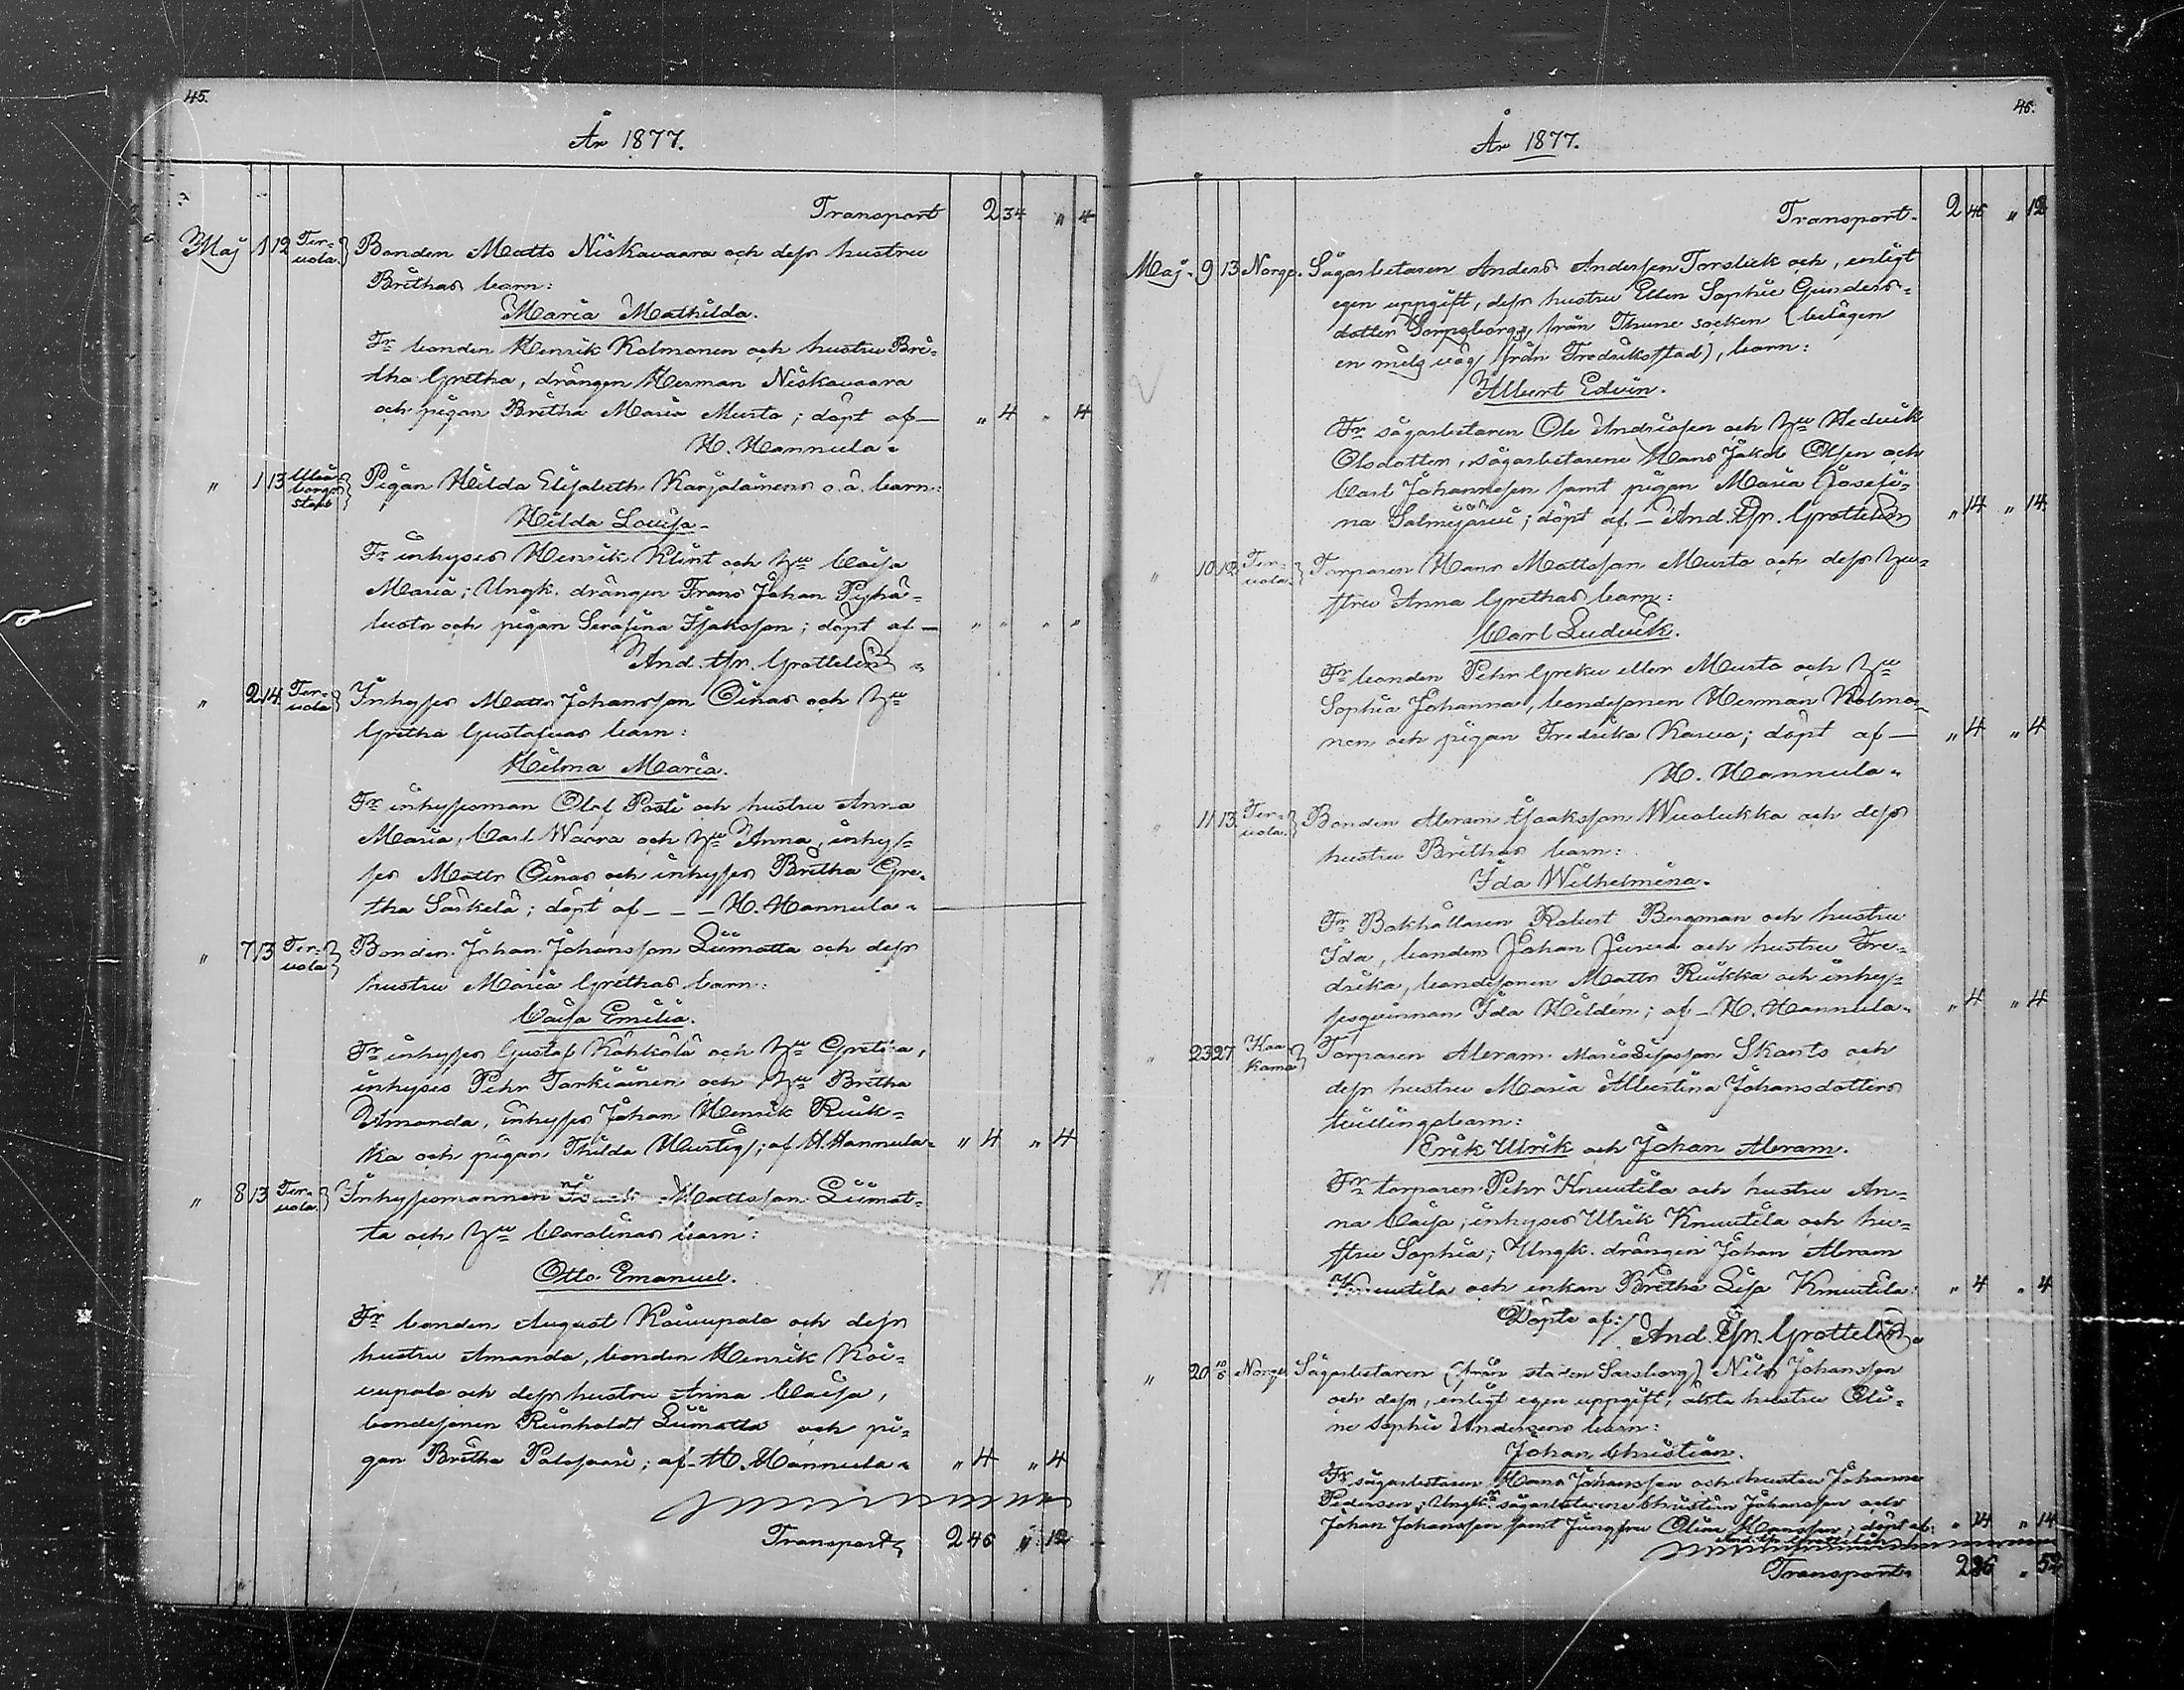 45.
År 1877.
Transport 2 34 " 4
Maj 1 12 Ter-
vola
Bonden Matts Niskavaara och dess hustru
Brithas barn:
Maria Mathilda.
Fr bonden Henrik Kolmonen och hustru Bri-
tha Gretha, drängen Herman Niskavaara
och pigan Britha Maria Musta; döpt af — " 4 " 4
H. Hannula.
" 1 13 Uleå-
borgs
stads
Pigan Hilda Elisabeth Karjalainens o.ä. barn:
Hilda Lovisa.
Fr inhyses Henrik Klint och hu Caisa
Maria; Ungk. drängen Frans Johan
och pigan Serafina Isaksson; döpt af — " " " "
And. Gr. Grottelin
" 2 14 Ter-
vola
Inhyses Matts Johansson Oinas och hu
Gretha Gustafvas barn:
Hilma Maria.
Fr inhysesman Olof Posti och hustru Anna
Maria, Carl Waara och hu Anna, inhy-
ses Matts Oinas och inhyses Britha Gre-
tha Särkelä; döpt af - - - H. Hannula.
" 7 13 Ter-
vola
Bonden Johan Johansson Liimatta och dess
hustru Maria Grethas barn:
Caisa Emilia.
Fr inhyses Gustaf Kähkölä och hu Gretha,
inhyses Pehr Tarkiainen och hu Britha
Amanda, inhyses Johan Henrik Ruik-
ka och pigan Thilda Hurtig; af H. Hannula. " 4 " 4
" 8 13 Ter-
vola
Inhysesmannen Mattsson Liimat-
ta och hu Carolinas barn:
Otto Emanuel.
Fr bonden August Koivupalo och dess
hustru Amanda, bonden Henrik Koi-
vupalo och dess hustru Anna Caisa,
bondesonen Reinholdt Liimatta och pi-
gan Britha Palosaari; af H. Hannula. " 4 " 4
Transport 2 46 " 12
46.
År 1877.
Transport 2 46 " 12
Maj 9 13 Norge. Sågarbetaren Anders Andersen Torslick och, enligt
egen uppgift, dess hustru Ellen Sophie Gunders-
dotter från Thune socken (belägen
en mils väg från Fredriksstad), barn:
Albert Edvin.
Fr sågarbetaren Ole Andreasen och hu Hedvik
Olsdotter, sågarbetarene Hans Jakob Olsen och
Carl Johannesen samt pigan Maria Josefi-
na Salmijärvi; döpt af — And. Gr. Grottelin " 14 " 14
" 10 12 Ter-
vola
Torparen Hans Mattsson Musta och dess hu-
stru Anna Grethas barn:
Carl Ludvik.
Fr bonden Pehr Greku eller Musta och hu
Sophia Johanna, bondesonen Herman Kolmo-
nen och pigan Fredrika Karva; döpt af — " 4 " 4
H. Hannula.
" 11 13 Ter-
vola
Bonden Abram Isaksson Wuolukka och dess
hustru Brithas barn:
Ida Wilhelmina.
Fr Bokhållaren Robert Bergman och hustru
Ida, bonden Johan Jurva och hustru Fre-
drika, bondesonen Matts Ruikka och inhy-
sesqvinnan Ida Hildén; af — H. Hannula. " 4 " 4
" 23 27 Kaa-
kamo
Torparen Abram Skants och
dess hustru Maria Albertina Johansdotters
tvillingebarn:
Erik Ulrik och Johan Abram.
Fr torparen Pehr Knuutila och hustru An-
na Caisa; inhyses Ulrik Knuutila och hu-
stru Sophia; Ungk. drängen Johan Abram
Knuutila och enkan Britha Lisa Knuutila: " 4 " 4
Döpte af: And. Gr. Grottelin
" 20 10/6 Norge Sågarbetaren (från staden Sarsborg) Nils Johanssen
och dess, enligt egen uppgift, äkta hustru Oli-
ne Sophie Andersens barn:
Johan Christian.
Fr sågarbetaren Hans Johanssen och hustru Johanne
Pedersen; Ungk. sågarbetarene Christian Johanssen och
Johan Johanssen samt Jungfru Oline Hanssen; döpt af: " 14 " 14
And. Gr. Grottelin
Transport 286 " 52